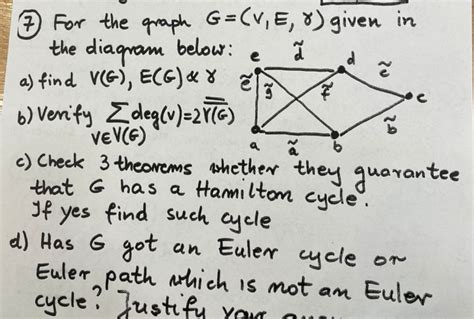 ⑦ For the graph G=(V,E,γ) given in
the diagram below:
a) find V(G), E(G) & γ
b) Verify ∑deg(v)=2|E(G)|
v∈V(G)
e d̃ d
ẽ g̃ f̃ c̃ c
a ã b b̃
c) Check 3 theorems whether they guarantee
that G has a Hamilton cycle.
If yes find such cycle
d) Has G got an Euler cycle or
Euler path which is not an Euler
cycle? Justify your